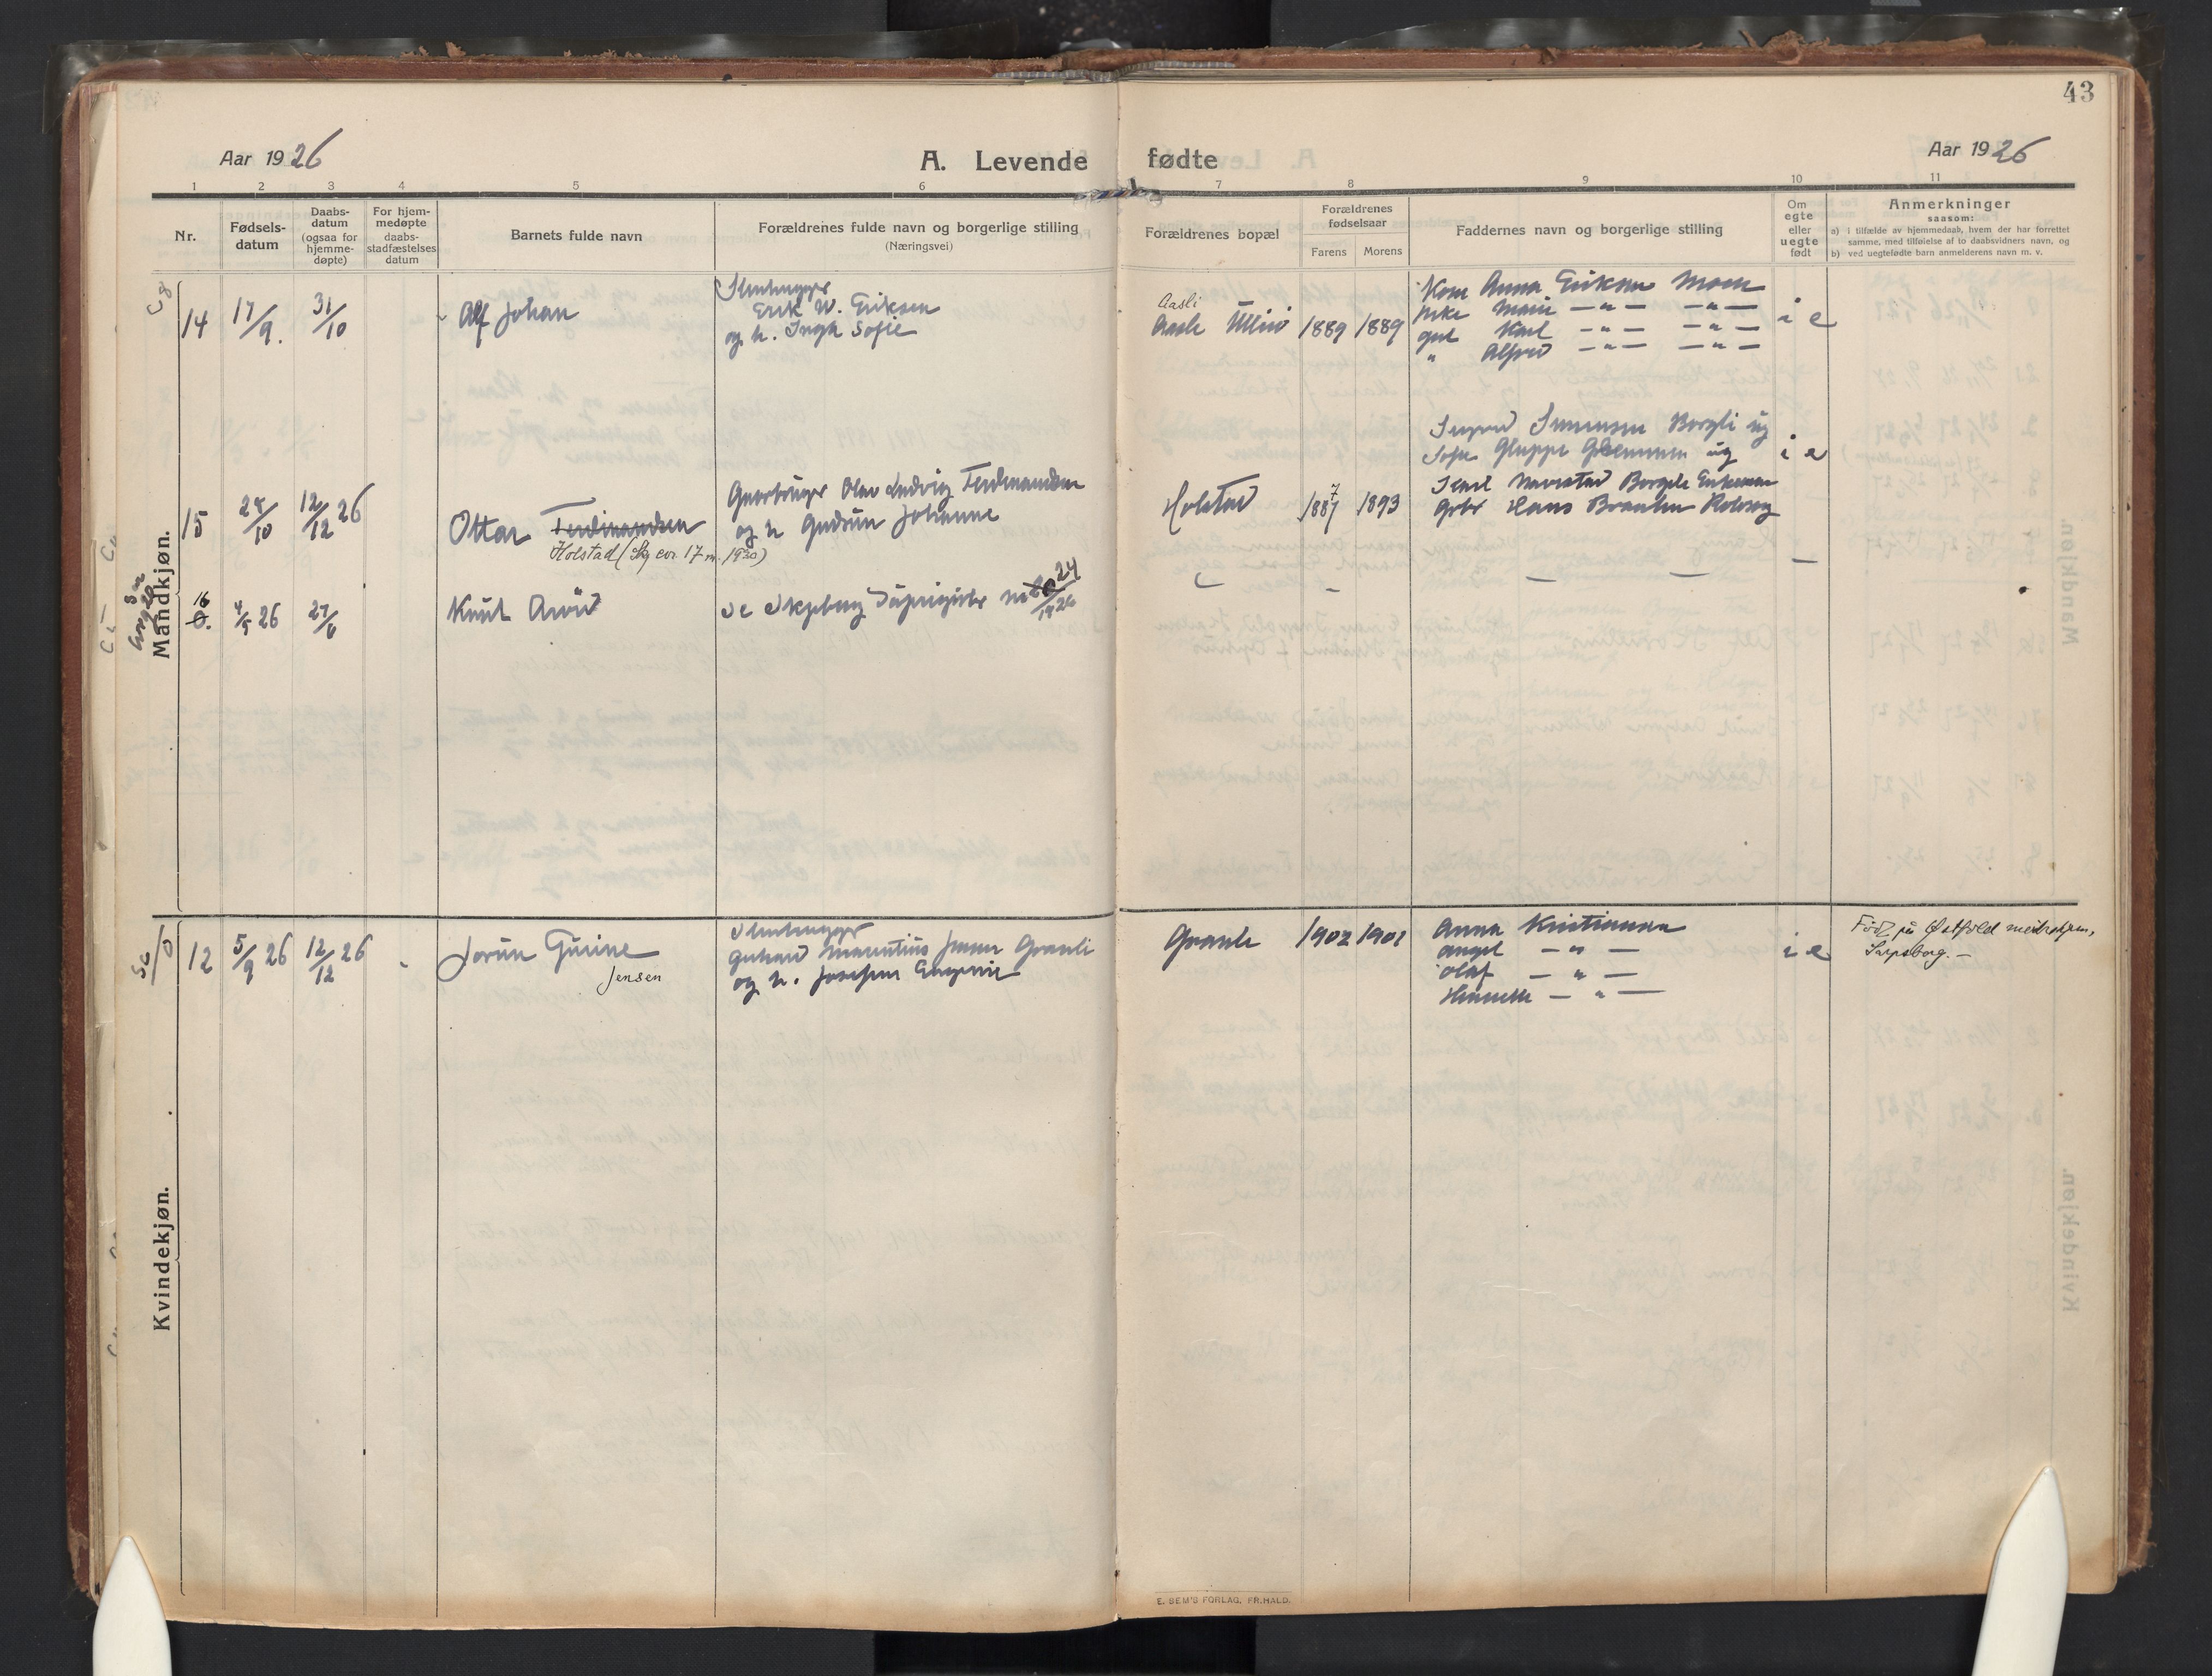 43
Aar 1926
A. Levende fødte
Aar 1926
1 2 3 4 5 6 7 8 9 10 11
Nr.
Fødsels-
datum
Daabs-
datum
(ogsaa for
hjemme-
døpte)
For hjem-
medøpte
daabs-
stadfæstelses
datum
Barnets fulde navn
Forældrenes fulde navn og borgerlige stilling
(Næringsvei)
Forældrenes bopæl
Forældrenes
fødselsaar
Farens Morens
Faddernes navn og borgerlige stilling
Om
egte
eller
uegte
født
Anmerkninger
saasom:
a) i tilfælde av hjemmedaab, hvem der har forrettet
samme, med tilføielse af to daabsvidners navn, og
b) ved uegtefødte barn anmelderens navn m. v.
Mandkjøn.
14 17/9. 31/10
Alf Johan
Stenhugger
Erik W. Eriksen
og h. Inga Sofie
Aasli
Aasli Ullerø
1889 1889
Kone Anna Eriksen Moen
Pike Marie — " — — " —
gut Karl — " — — " —
" Alfred — " — — " —
i e
15 28/10 12/12 26
Ottar Ferdinandsen
Holstad (Kg. res. 17 m. 1930)
Gaardbruger Olav Ludvig Ferdinandsen
og h. Gudrun Johanne
Holstad
1887 7 1893
Ingrid Simensen Borgli ug
Sofie Gluppe Glemmen ug
Navestad Borgli Enkemann
Gbr Hans Braaten Rolvsøy
i e
16 4/5 26 27/6
Knut Arvid
Se Skjeberg
24
19 26
Kvindekjøn.
12 5/9 26 12/12 26
Jorun Gurine
Jensen
Stenhugger
Gerhard Marentius Jensen Graali
og h. Josefine Eugenie
Graali
1902 1901
Anna Kristiansen
Angel — " —
Olaf — " —
Henriette — " —
i e
Född på Østfold mödrehjem,
Sarpsborg. —
E. SEM'S FORLAG, FR.HALD.
Mandkjøn.
Kvindekjøn.